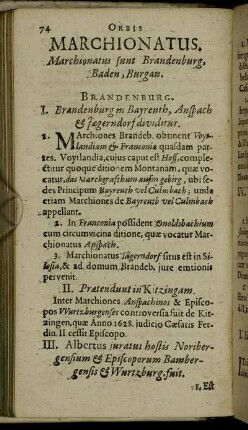 74 ORBIS
MARCHIONATUS.
Marchionatus sunt Brandenburg,
Baden, Burgau.
BRANDENBURG.
I. Brandenburg in Bayreuth, Anspach
& Jægerndorf dividitur.
2. MArchiones Brandeb. obtinent Voyt-
landiam & Franconiæ quasdam par-
tes. Voytlandia, cujus caput est Hoff, comple-
ctitur quoque ditionem Montanam, quæ vo-
catur, das Marckgrafthum auffm gebirg, ubi se-
des Principum Bayreuth vel Culmbach; unde
etiam Marchiones de Bayreuth vel Culmbach
appellant.
2. In Franconia possident Onoldsbachium
cum circumvicina ditione, quæ vocatur Mar-
chionatus Anspach.
3. Marchionatus Jägerndorf situs est in Si-
lesia, & ad domum Brandeb. jure emtionis
pervenit.
II. Prætendunt in Kitzingam.
Inter Marchiones Anspachinos & Episco-
pos Wurtzburgenses controversia fuit de Kit-
zingen, quæ Anno 1628. judicio Cæsaris Fer-
din. II. cessit Episcopo.
III. Albertus juratus hostis Noriber-
gensium & Episcoporum Bamber-
gensis & Wurtzburg. fuit.
1. Est